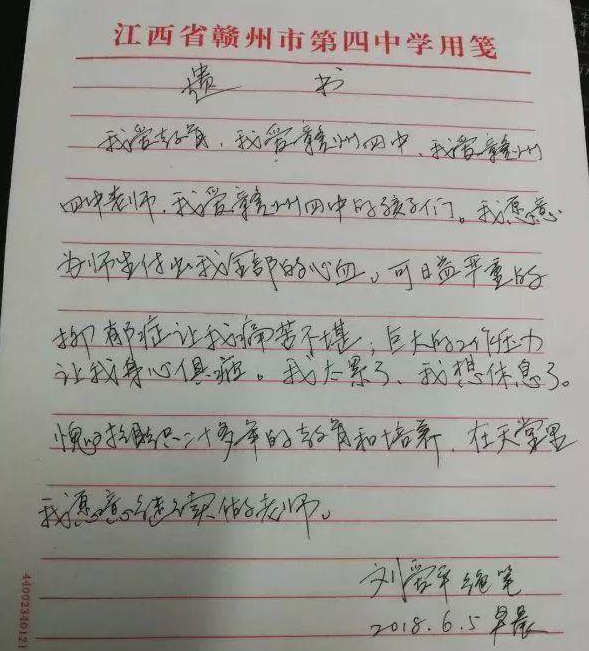 江西省赣州市第四中学用笺
遗 书
我爱教育,我爱赣州四中,我爱赣州
四中老师,我爱赣州四中的孩子们。我愿意
为师生付出我全部的心血,可日益严重的
抑郁症让我痛苦不堪;巨大的工作压力
让我身心俱疲。我太累了,我想休息了。
愧对组织二十多年的教育和培养,在天堂里
我愿意继续做老师。
刘爱平 绝笔
2018.6.5 早晨
44002340121